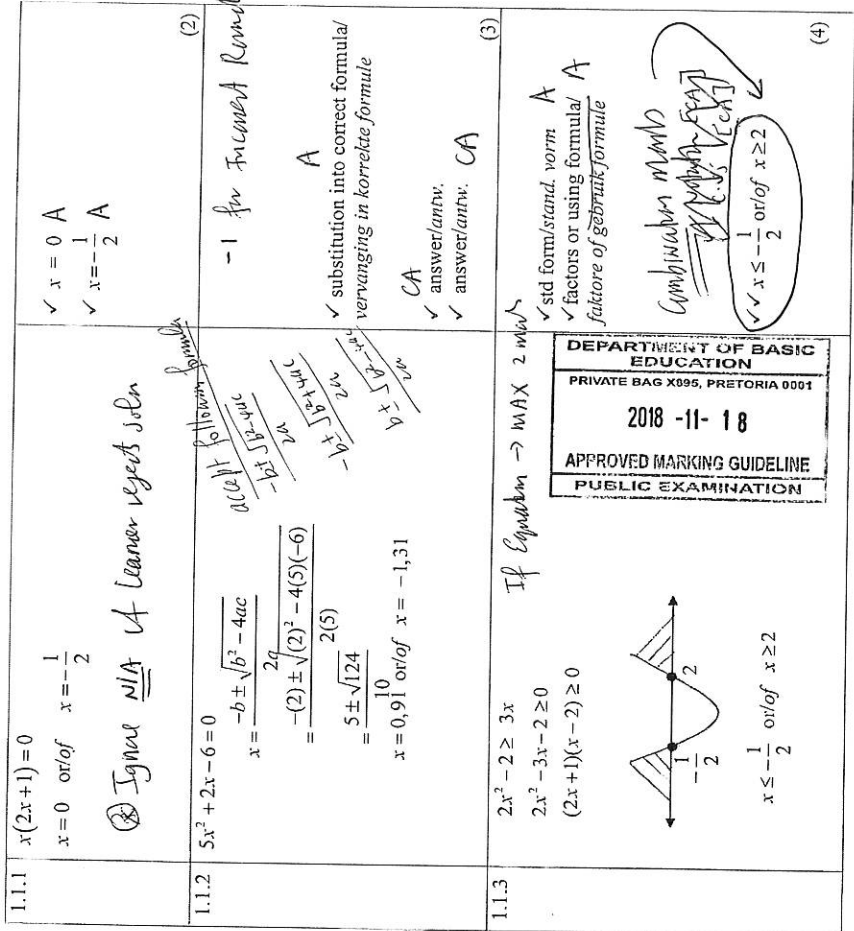 1.1.1
x(2x+1)=0
x=0 or/of x=-1/2
⊛ Ignore N/A if learner rejects soln
✓ x = 0 A
✓ x=-1/2 A
(2)
1.1.2
5x²+2x-6=0
x = (-b±√(b²-4ac))/2a
= (-(2)±√((2)²-4(5)(-6)))/2(5)
= (5±√124)/10
x=0,91 or/of x=-1,31
accept following formula
(-b±√(b²-4ac))/2a
(-b±√(b²+4ac))/2a
(b±√(b²-4ac))/2a
-1 for Incorrect
A
✓ substitution into correct formula/
vervanging in korrekte formule
CA
✓ answer/antw.
✓ answer/antw. CA
(3)
1.1.3
If Equation → MAX 2 marks
2x²-2≥ 3x
2x²-3x-2≥0
(2x+1)(x-2)≥0
-1/2 2
x≤-1/2 or/of x≥2
DEPARTMENT OF BASIC
EDUCATION
PRIVATE BAG X895, PRETORIA 0001
2018 -11- 18
APPROVED MARKING GUIDELINE
PUBLIC EXAMINATION
✓ std form/stand. vorm A
✓ factors or using formula/ A
faktore of gebruik formule
Combination marks
[CA]
[CA]
✓✓ x≤-1/2 or/of x≥2
(4)